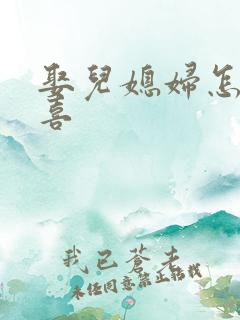 娶兒媳婦怎
喜
我已蒼老
未经同意禁止转载